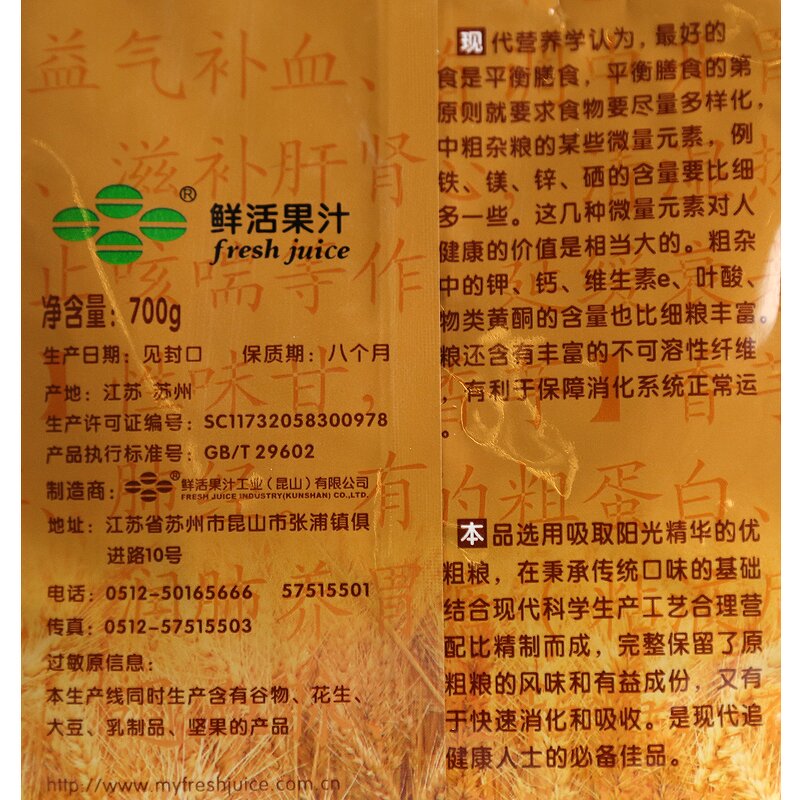 益气补血、
滋补肝肾
止咳喘等作
味甘，
肺经。有
的粗蛋白、
润肺养胃
鲜活果汁®
fresh juice
净含量：700g
生产日期：见封口 保质期：八个月
产地：江苏 苏州
生产许可证编号：SC11732058300978
产品执行标准号：GB/T 29602
制造商：®鲜活果汁工业（昆山）有限公司
FRESH JUICE INDUSTRY(KUNSHAN) CO.,LTD.
地址：江苏省苏州市昆山市张浦镇俱
进路10号
电话：0512-50165666 57515501
传真：0512-57515503
过敏原信息：
本生产线同时生产含有谷物、花生、
大豆、乳制品、坚果的产品
http://www.myfreshjuice.com.cn
现代营养学认为，最好的
食是平衡膳食，平衡膳食的第
原则就要求食物要尽量多样化，
中粗杂粮的某些微量元素，例
铁、镁、锌、硒的含量要比细
多一些。这几种微量元素对人
健康的价值是相当大的。粗杂
中的钾、钙、维生素e、叶酸、
物类黄酮的含量也比细粮丰富。
粮还含有丰富的不可溶性纤维
，有利于保障消化系统正常运
。
本品选用吸取阳光精华的优
粗粮，在秉承传统口味的基础
结合现代科学生产工艺合理营
配比精制而成，完整保留了原
粗粮的风味和有益成份，又有
于快速消化和吸收。是现代追
健康人士的必备佳品。